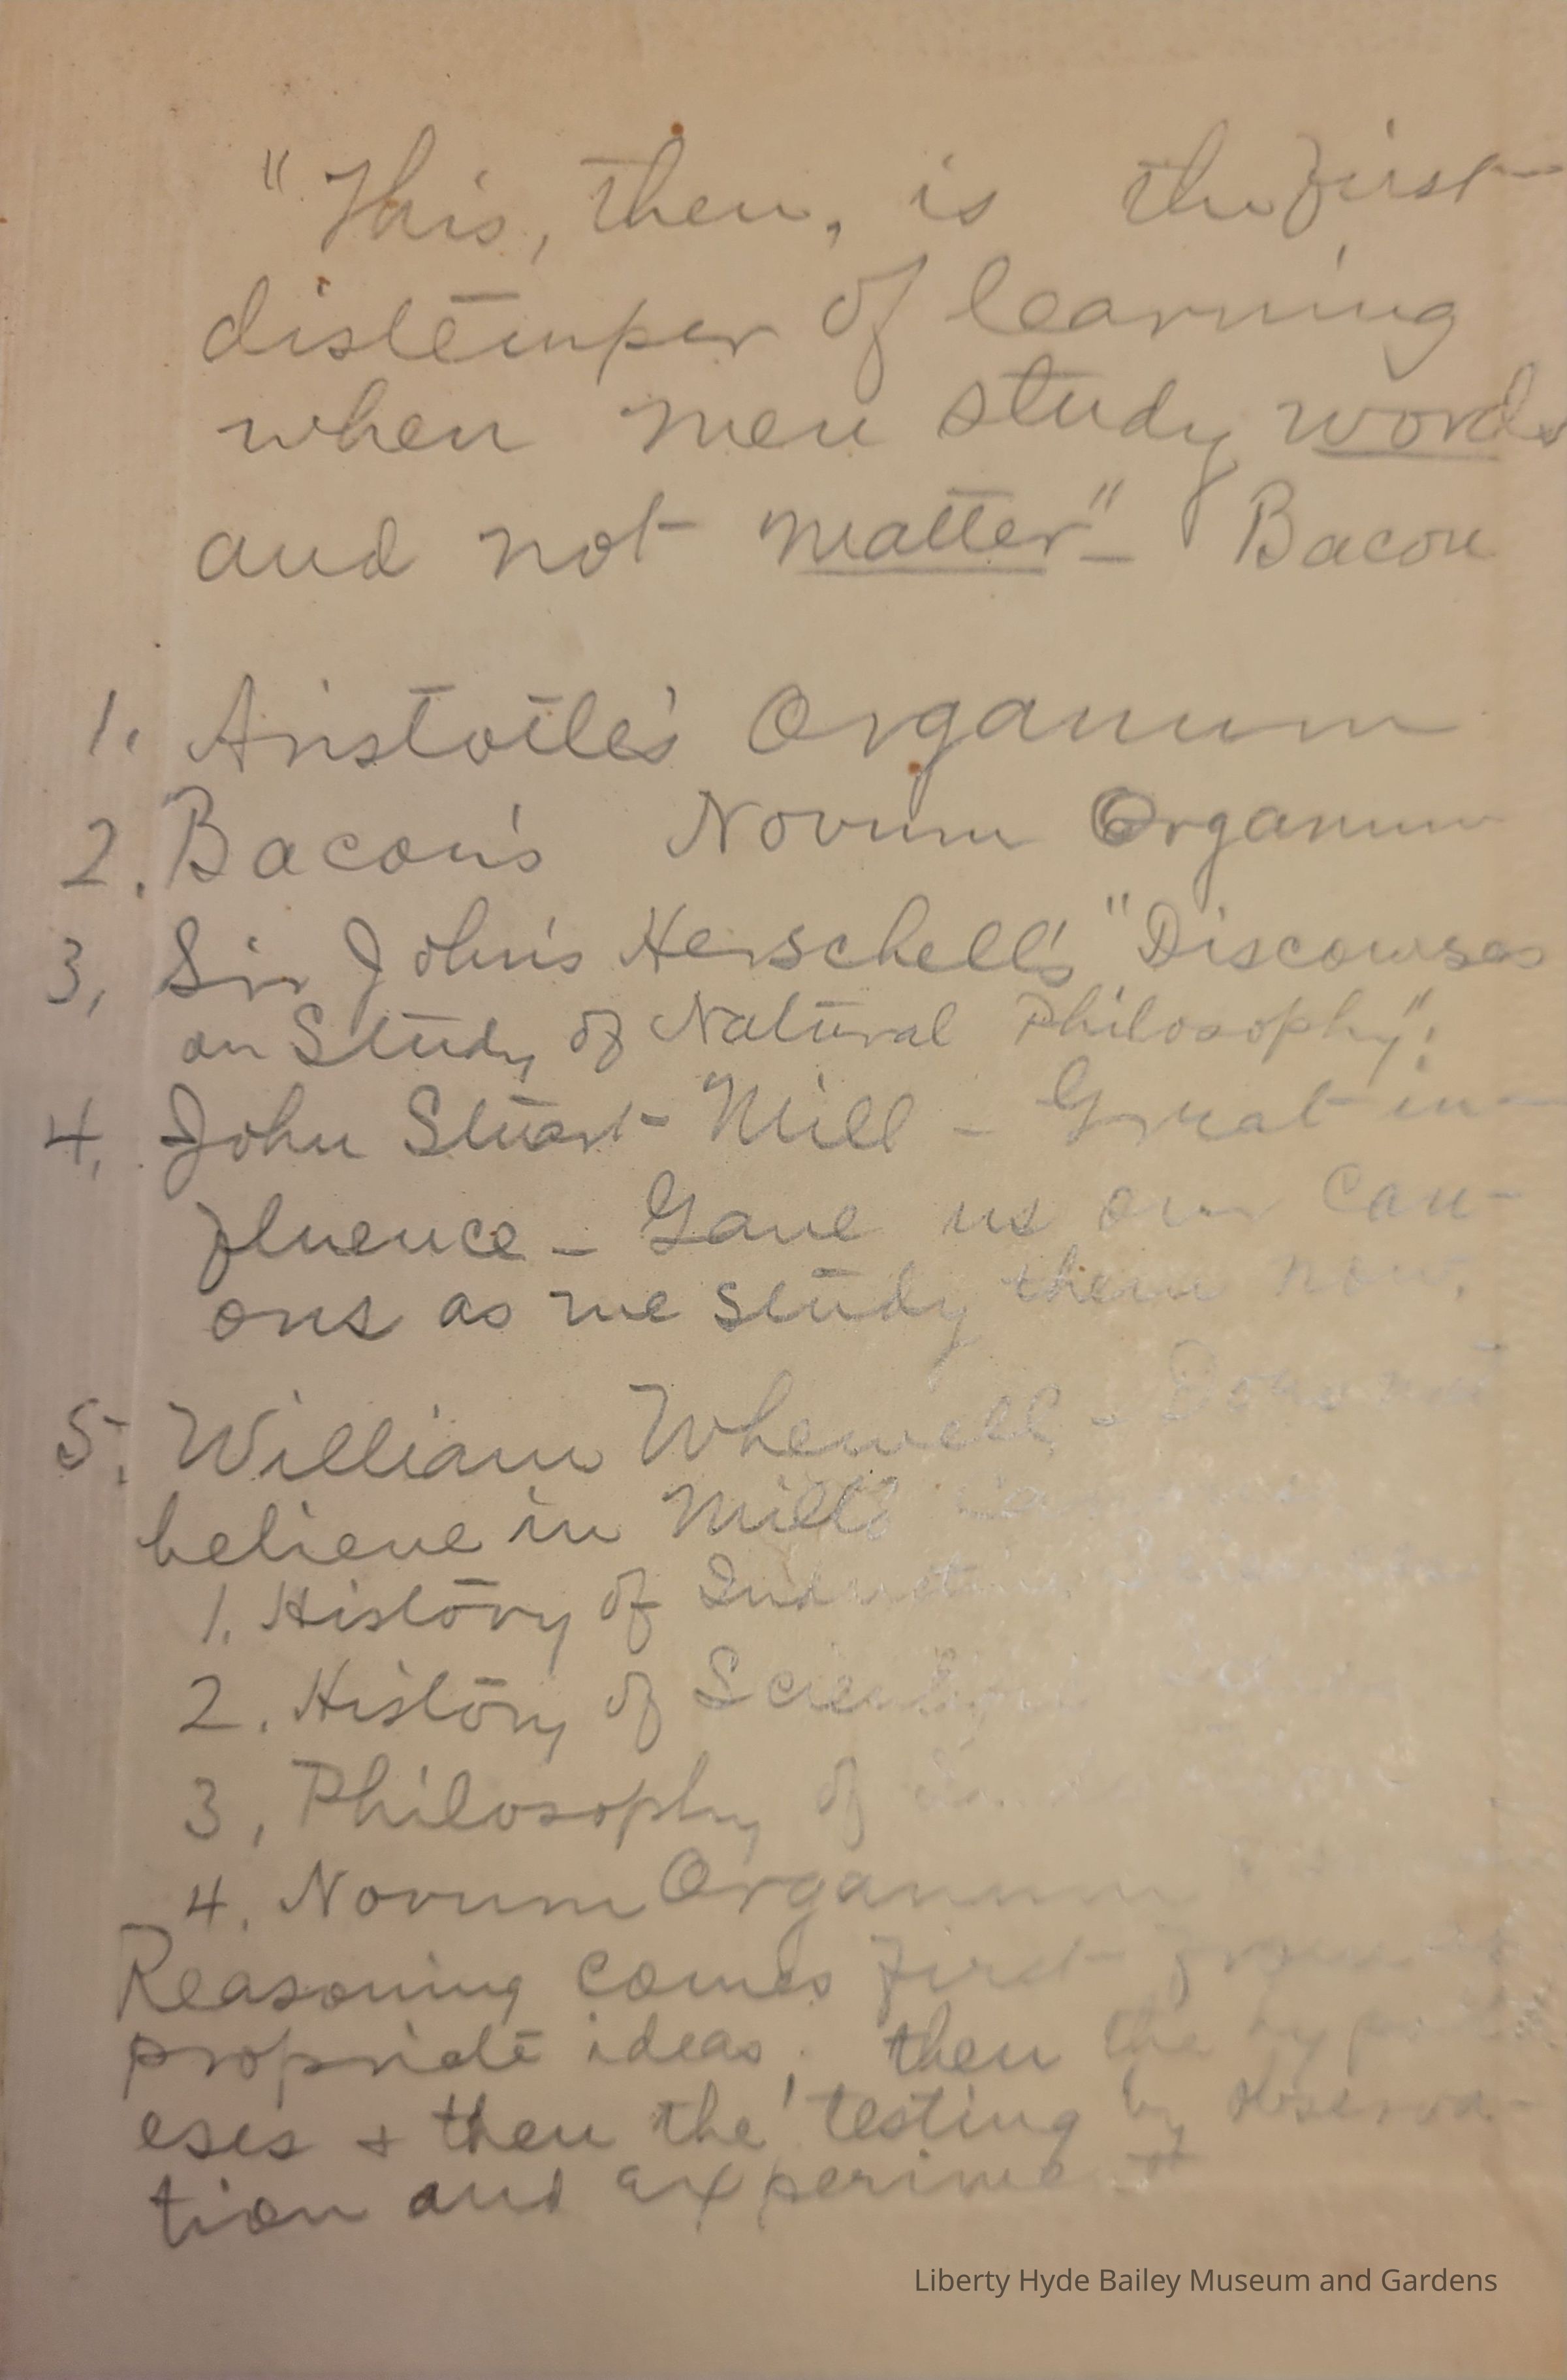 "This, then, is the first
distemper of learning
when men study words
and not matter" - Bacon
1. Aristotle's Organum
2. Bacon's Novum Organum
3, Sir John's Herschell's "Discourses
on Study of Natural Philosophy":
4. John Stuart Mill - Great in-
fluence - Gave us our Can-
ons as we study them now.
5. William Whewell - Does not
believe in Mill's
1. History of Inductive
2. History of Scientific
3, Philosophy of
4. Novum Organum
Reasoning comes first from
propriate ideas; then the
eses + then the testing by observa-
tion and experiment
Liberty Hyde Bailey Museum and Gardens